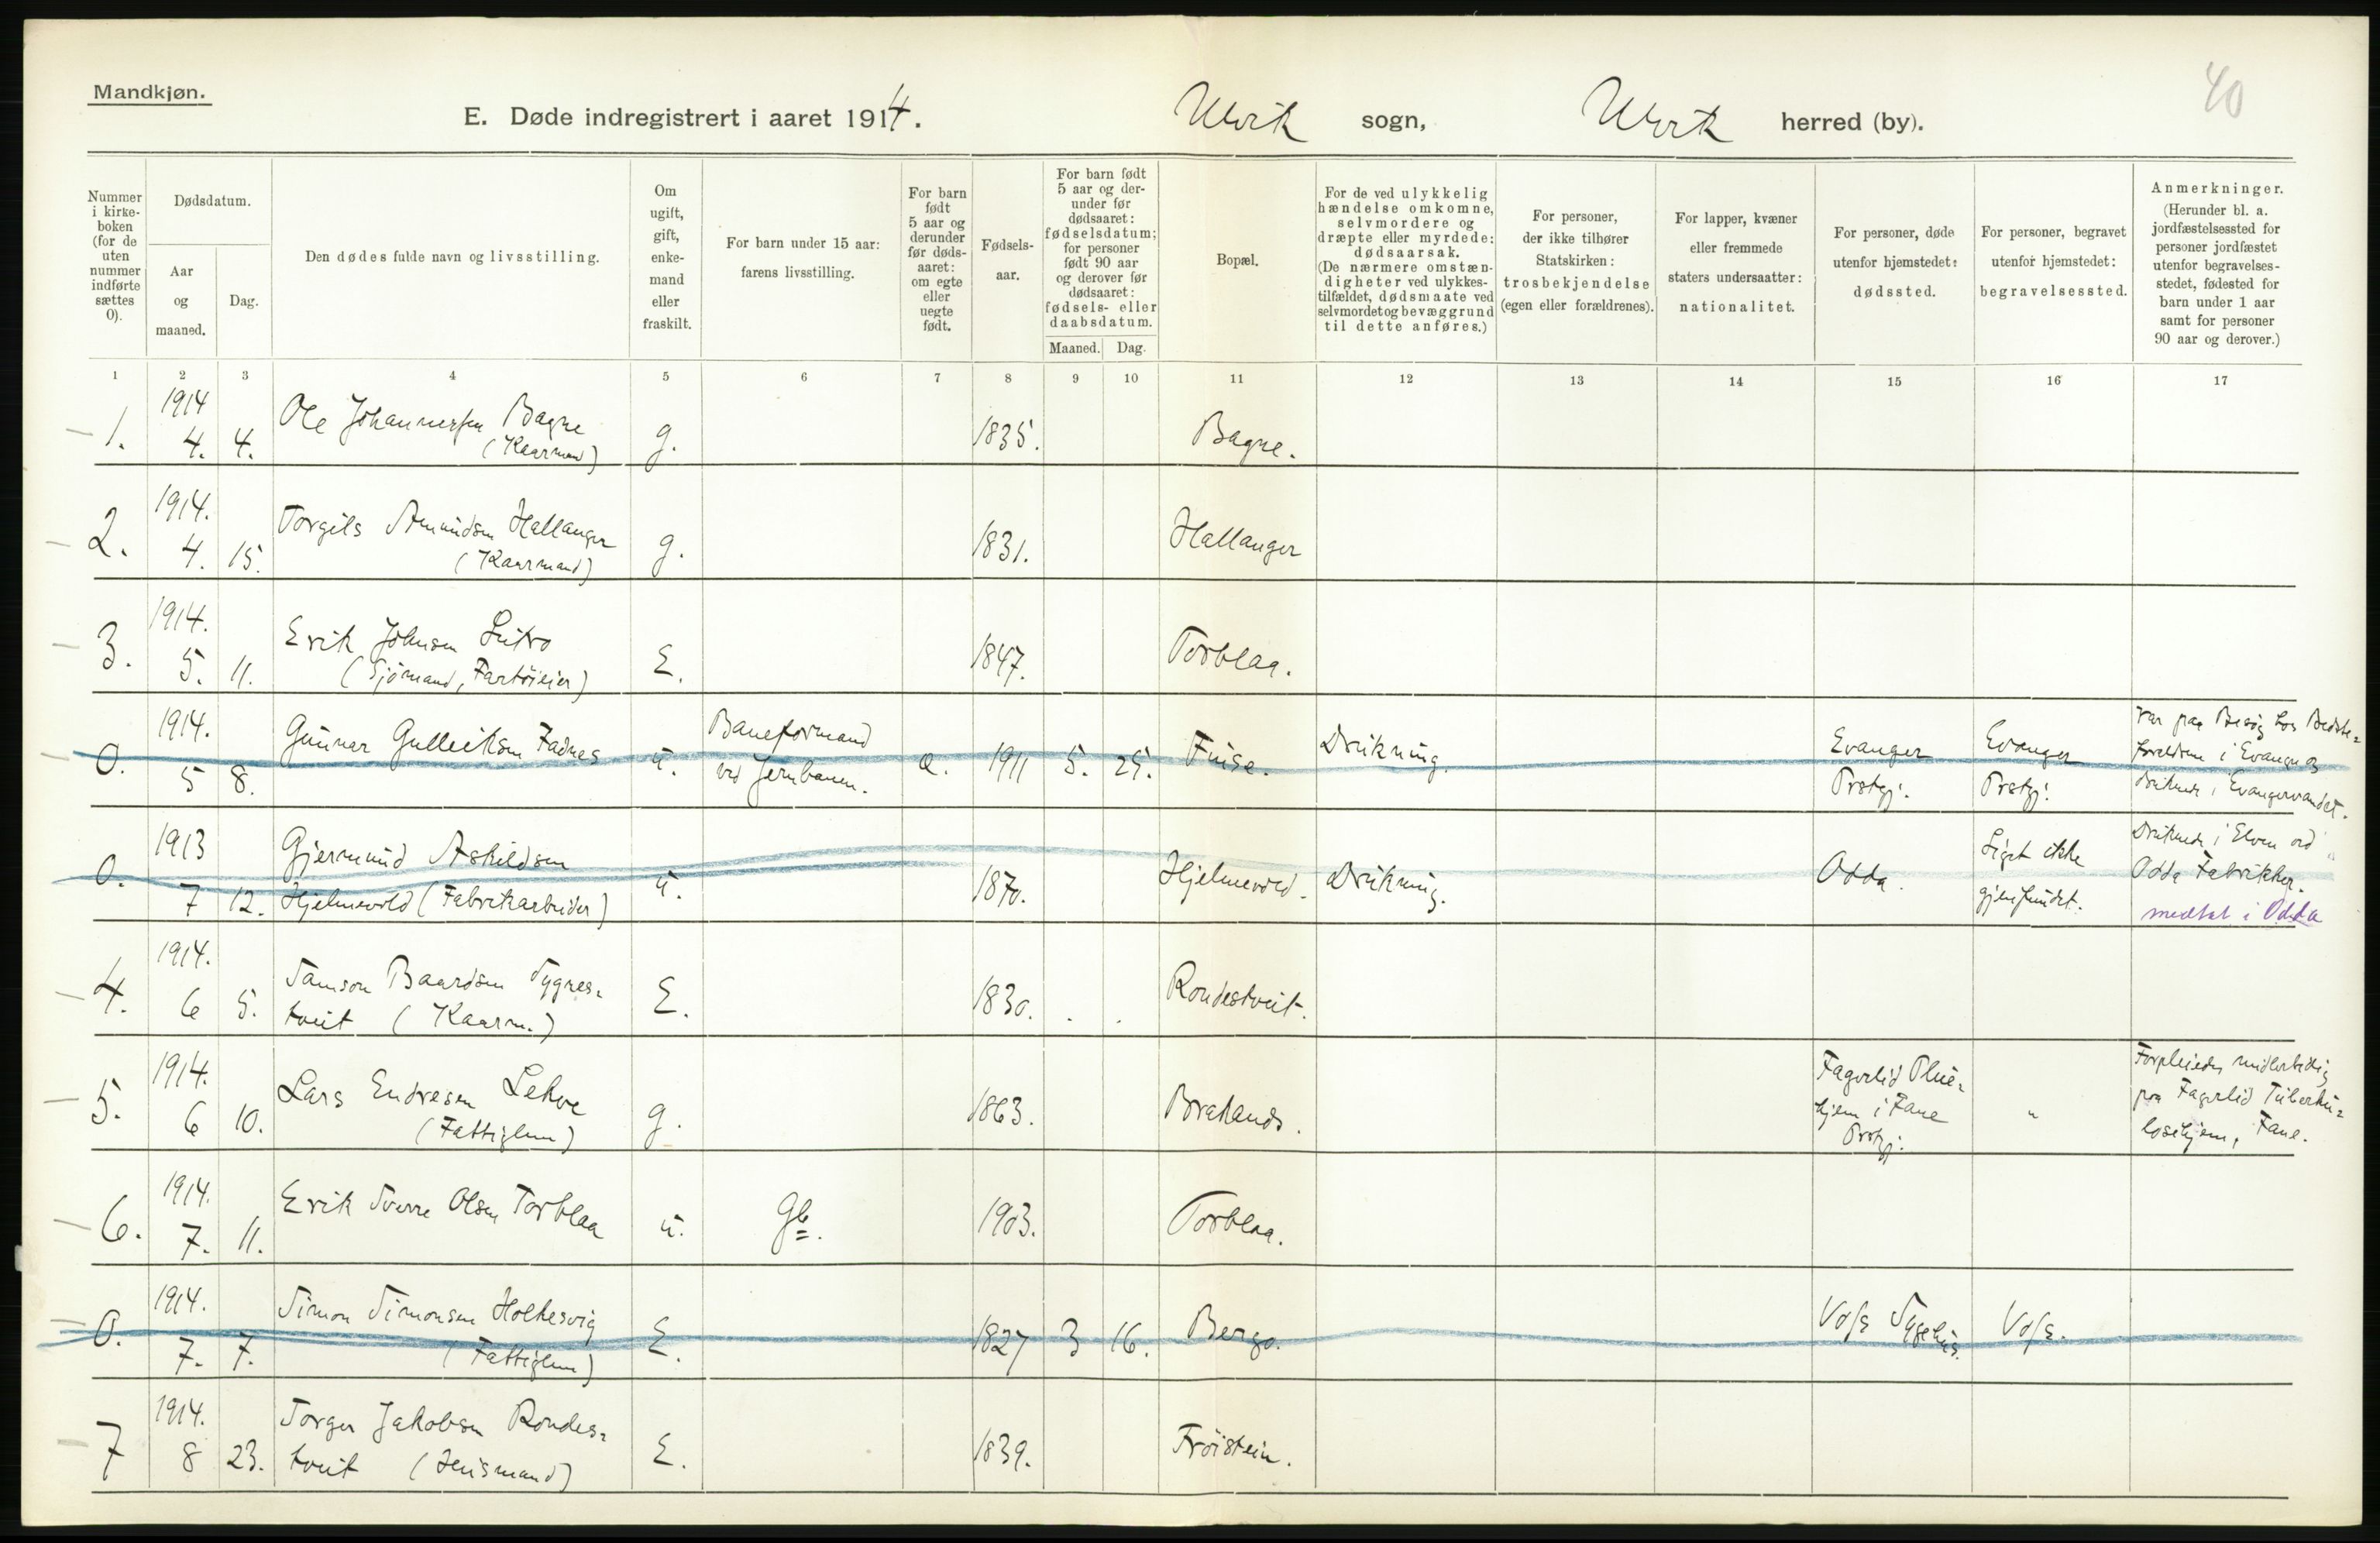 Mandkjøn.
40
E. Døde indregistrert i aaret 1914. Ulvik sogn, Ulvik herred (by).
Nummer i kirke- boken (for de uten nummer indførte sættes 0).
Dødsdatum.
Aar og maaned.
Dag.
Den dødes fulde navn og livsstilling.
Om ugift, gift, enke- mand eller fraskilt.
For barn under 15 aar: farens livsstilling.
For barn født 5 aar og derunder før døds- aaret: om egte eller uegte født.
Fødsels- aar.
For barn født 5 aar og der- under før dødsaaret: fødselsdatum; for personer født 90 aar og derover før dødsaaret: fødsels- eller daabsdatum.
Maaned. Dag.
Bopæl.
For de ved ulykkelig hændelse omkomne, selvmordere og dræpte eller myrdede: dødsaarsak. (De nærmere omstæn- digheter ved ulykkes- tilfældet, dødsmaate ved selvmordet og bevæggrund til dette anføres.)
For personer, der ikke tilhører Statskirken: trosbekjendelse (egen eller forældrenes).
For lapper, kvæner eller fremmede staters undersaatter: nationalitet.
For personer, døde utenfor hjemstedet: dødssted.
For personer, begravet utenfor hjemstedet: begravelsessted.
Anmerkninger. (Herunder bl. a. jordfæstelsessted for personer jordfæstet utenfor begravelses- stedet, fødested for barn under 1 aar samt for personer 90 aar og derover.)
1 2 3 4 5 6 7 8 9 10 11 12 13 14 15 16 17
1. 1914 4. 4. Ole Johannessen Bagne (Kaarmand) g. 1835. Bagne.
2. 1914. 4. 15. Torgils Amundsen Hallanger (Kaarmand) g. 1831. Hallanger
3. 1914. 5. 11. Erik Johnsen Lutro (Sjømand, Fartøieier) E. 1847. Torblaa.
0. 1914. 5 8. Gunnar Gulleiksen Fadnes u. Baneformand ved Jernbanen. e. 1911 5. 25. Finse. Drukning. Evanger Prstgj. Evanger Prstgj. Var paa Besøg hos Bedste= foreldrene i Evanger og druknede i Evangervandet.
0. 1913 7 12. Gjermund Askildsen Hjelmevold (Fabrikarbeider) u. 1870. Hjelmevold. Drukning. Odda. Liget ikke gjenfundet. Druknede i Elven ved Odda Fabrikker. medtat i Odda
4. 1914. 6 5. Samson Baardsen Sygnes= tveit (Kaarm.) E. 1830. . . Rondestveit.
5. 1914. 6 10. Lars Endresen Lekve (Fattiglem) g. 1863. Brakanes. Fagerlid Pleie= hjem i Fane Prstgj. " Forpleiedes midlertidig paa Fagerlid Tuberku= losehjem, Fane.
6. 1914. 7. 11. Erik Sverre Olsen Torblaa u. Gb. 1903. Torblaa.
0. 1914. 7. 7. Simon Simonsen Holkesvig (Fattiglem) E. 1827 3 16. Bergo. Voss Sygehus. Voss.
7 1914. 8 23. Torger Jakobsen Rondes= tveit (Husmand) E. 1839. Frøistein.